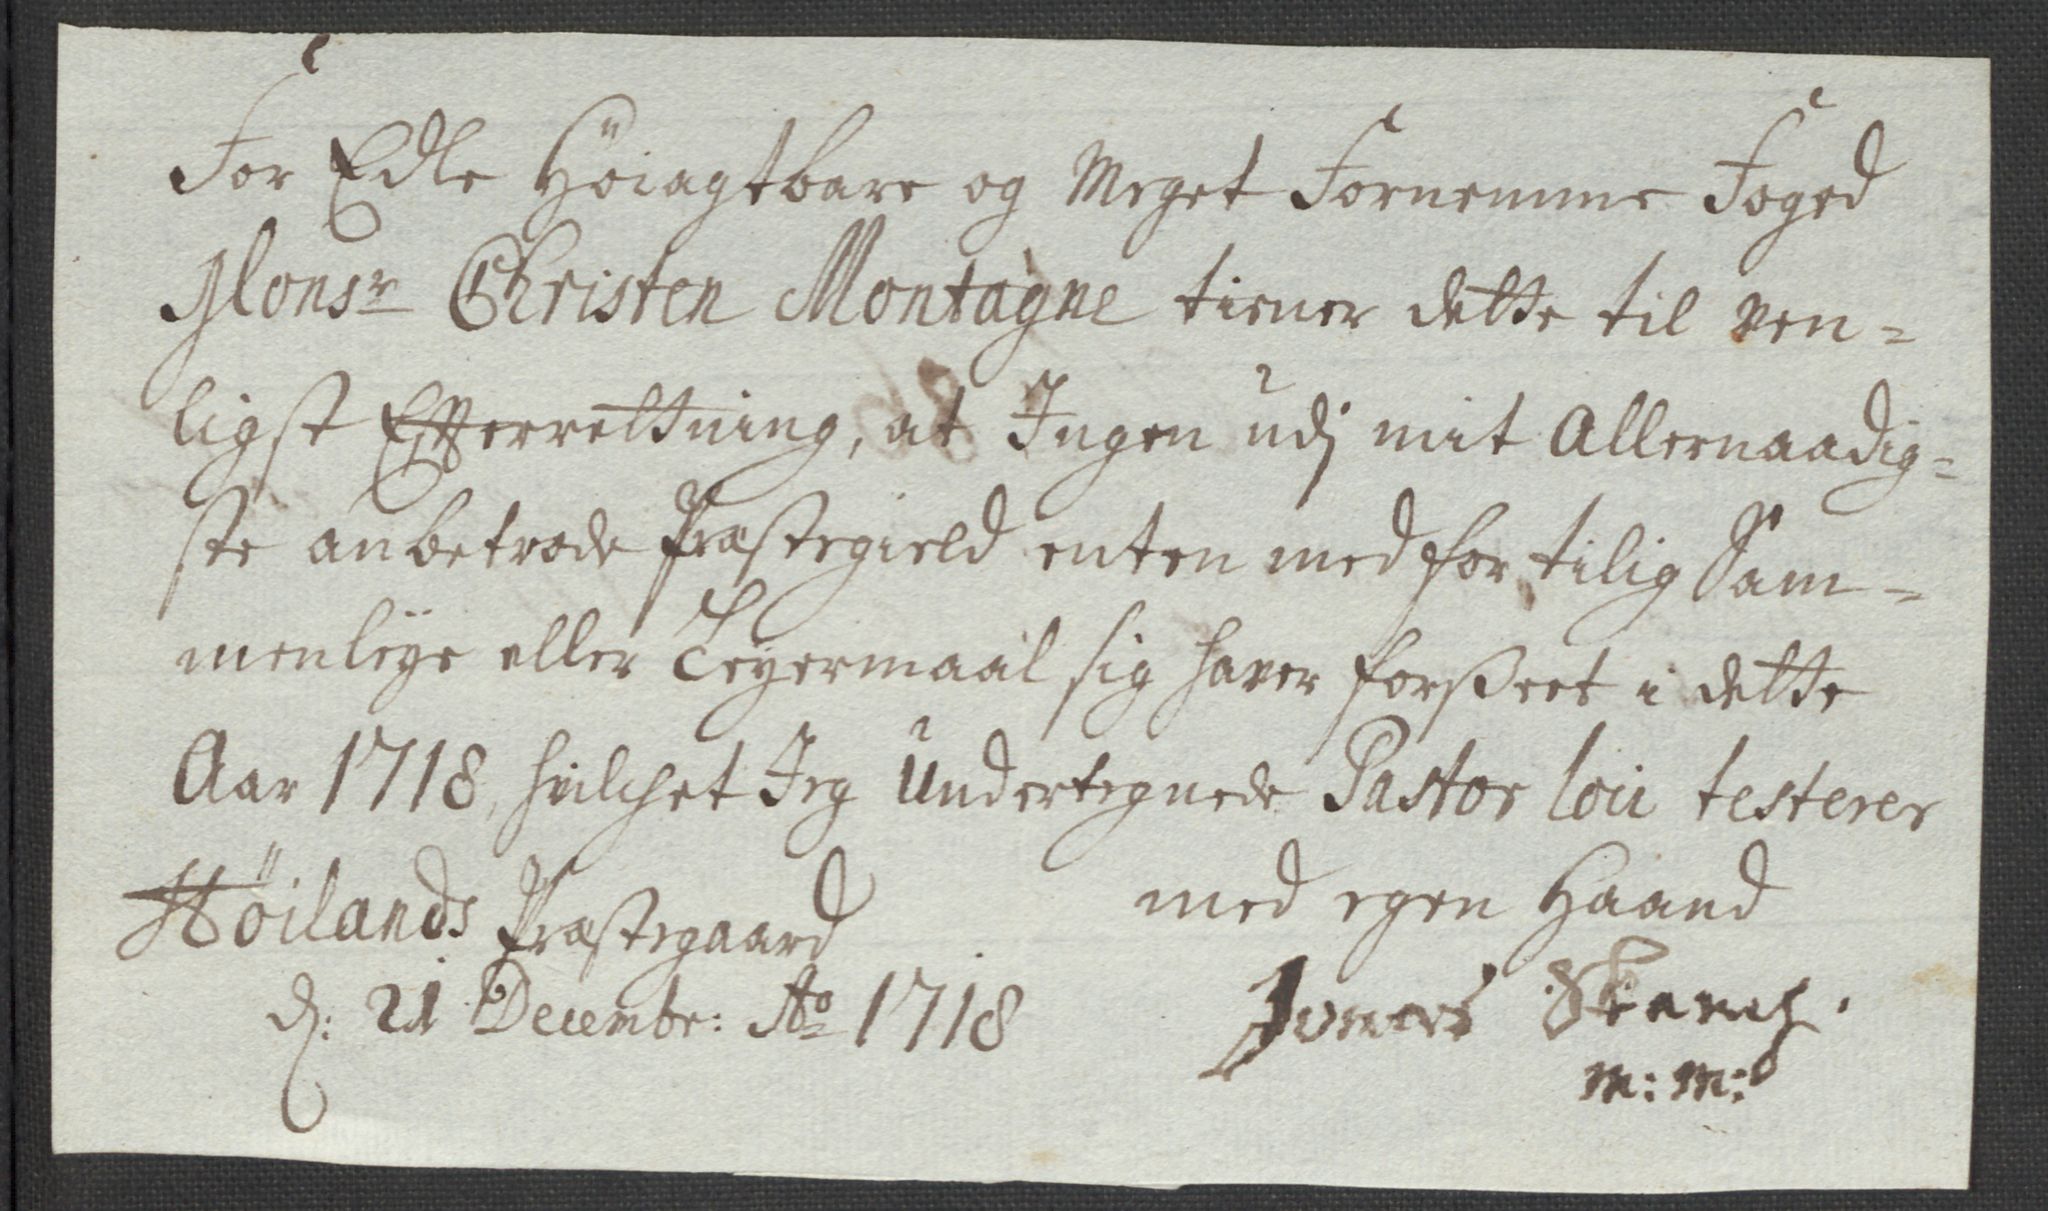 For Edle Höiagtbare og Meget Fornemme Foged
Monsr Christen Montagne tiener dette til ven=
ligst Efterrettning, at Ingen udj mit Allernaadig=
ste anbetrode Præstegield enten med for tilig Sam=
menleye eller Leyermaal sig haver forßeet i dette
Aar 1718, hvilchet Jeg Undertegnede Pastor loci testerer
Höilands Præstegaard
med egen Haand
d: 21 Decembr: Ao 1718
Jonas Skanch.
m: m: